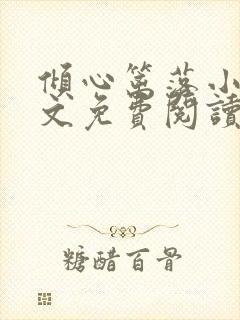 傾心篱落小
文免費閱讀
糖醋百骨